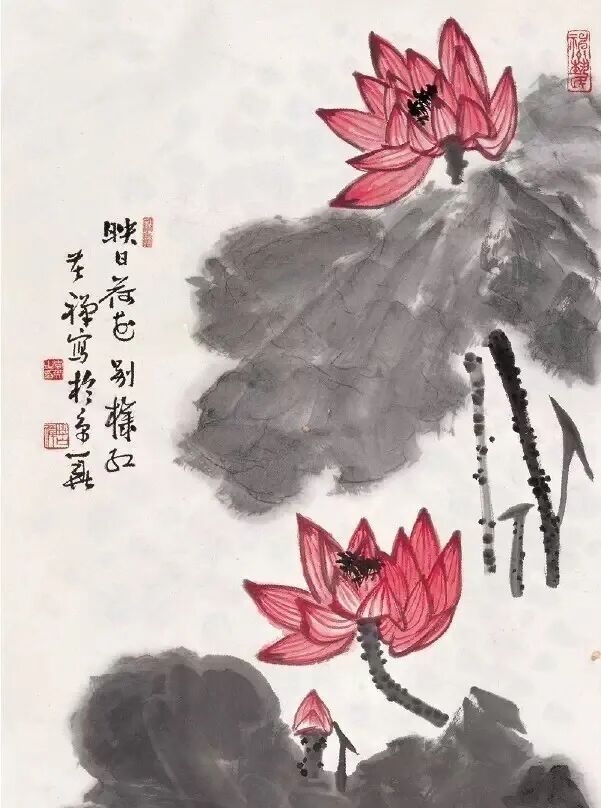 映日荷花别樣红
苦禪寫於京華